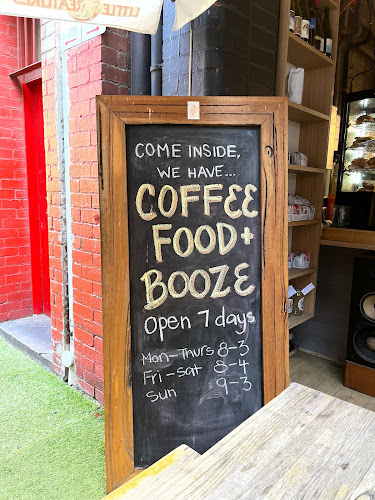 LITTLE CREATURES
COME INSIDE,
WE HAVE...
COFFEE
FOOD+
BOOZE
open 7 days
Mon-Thurs 8-3
Fri-sat 8-4
Sun 9-3